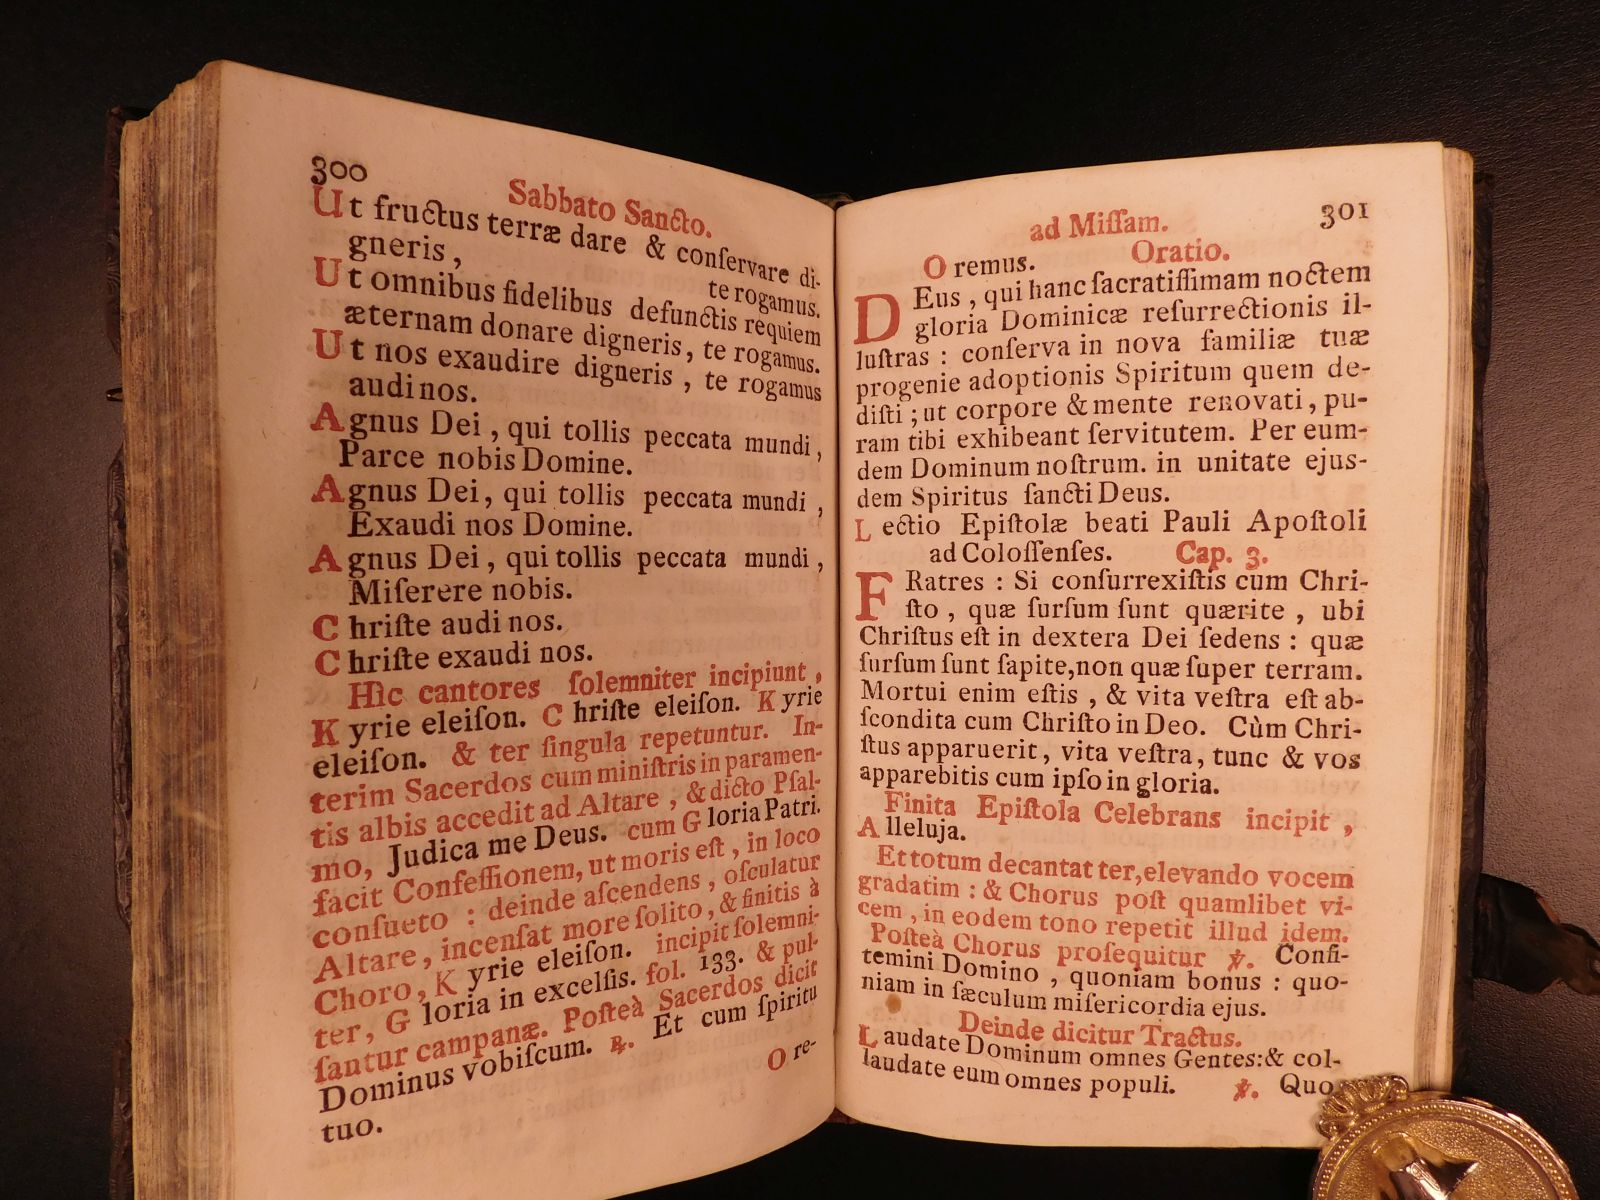 300
Sabbato Sancto.
Ut fructus terræ dare & conſervare di-
gneris,
te rogamus.
Ut omnibus fidelibus defunctis requiem
æternam donare digneris, te rogamus.
Ut nos exaudire digneris, te rogamus
audi nos.
Agnus Dei, qui tollis peccata mundi,
Parce nobis Domine.
Agnus Dei, qui tollis peccata mundi,
Exaudi nos Domine.
Agnus Dei, qui tollis peccata mundi,
Miſerere nobis.
Chriſte audi nos.
Chriſte exaudi nos.
Hìc cantores ſolemniter incipiunt,
Kyrie eleiſon. Chriſte eleiſon. Kyrie
eleiſon. & ter ſingula repetuntur. In-
terim Sacerdos cum miniſtris in paramen-
tis albis accedit ad Altare, & dicto Pſal-
mo, Judica me Deus. cum Gloria Patri.
facit Confeſſionem, ut moris eſt, in loco
conſueto : deinde aſcendens, oſculatur
Altare, incenſat more ſolito, & finitis à
Choro, Kyrie eleiſon. incipit ſolemni-
ter, Gloria in excelſis. fol. 133. & pul-
ſantur campanæ. Poſteà Sacerdos dicit
Dominus vobiſcum. ℟. Et cum ſpiritu
tuo.
Ore-
ad Miſſam.
301
Oremus. Oratio.
DEus, qui hanc ſacratiſſimam noctem
gloria Dominicæ reſurrectionis il-
luſtras : conſerva in nova familiæ tuæ
progenie adoptionis Spiritum quem de-
diſti ; ut corpore & mente renovati, pu-
ram tibi exhibeant ſervitutem. Per eum-
dem Dominum noſtrum. in unitate ejus-
dem Spiritus ſancti Deus.
Lectio Epiſtolæ beati Pauli Apoſtoli
ad Coloſſenſes. Cap. 3.
FRatres : Si conſurrexiſtis cum Chri-
ſto, quæ ſurſum ſunt quærite, ubi
Chriſtus eſt in dextera Dei ſedens : quæ
ſurſum ſunt ſapite, non quæ ſuper terram.
Mortui enim eſtis, & vita veſtra eſt ab-
ſcondita cum Chriſto in Deo. Cùm Chri-
ſtus apparuerit, vita veſtra, tunc & vos
apparebitis cum ipſo in gloria.
Finita Epiſtola Celebrans incipit,
Alleluja.
Et totum decantat ter, elevando vocem
gradatim : & Chorus poſt quamlibet vi-
cem, in eodem tono repetit illud idem.
Poſteà Chorus proſequitur ℣. Confi-
temini Domino, quoniam bonus : quo-
niam in ſæculum miſericordia ejus.
Deinde dicitur Tractus.
Laudate Dominum omnes Gentes: & col-
laudate eum omnes populi. ℣. Quo